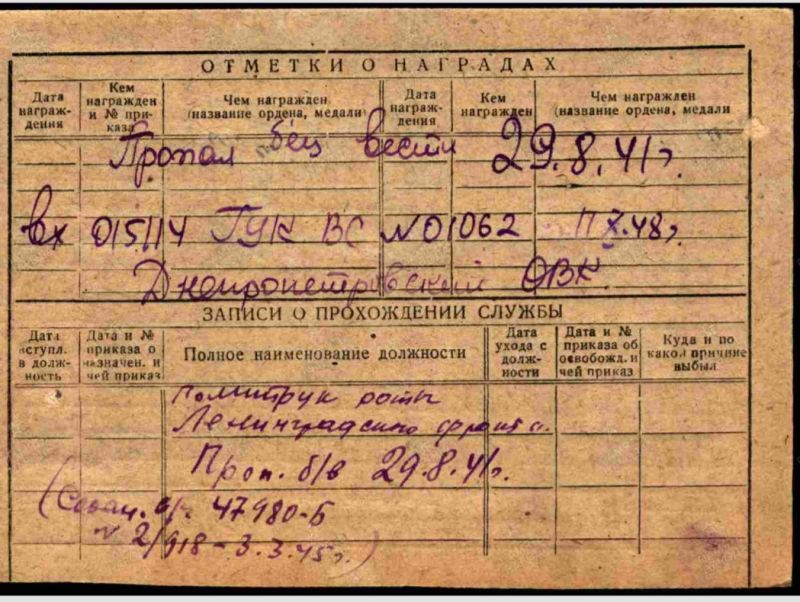 ОТМЕТКИ О НАГРАДАХ
Дата награж-дения
Кем награжден и № при-каза
Чем награжден (название ордена, медали
Дата награж-дения
Кем награжден
Чем награжден (название ордена, медали
Пропал без вести 29.8.41г.
вх 015114 ГУК ВС №01062 11 X.48г.
Днепропетровский ОВК
ЗАПИСИ О ПРОХОЖДЕНИИ СЛУЖБЫ
Дата вступл. в долж-ность
Дата и № приказа о назначен. и чей приказ.
Полное наименование должности
Дата ухода с долж-ности
Дата и № приказа об освобожд. и чей приказ
Куда и по какой причине выбыл
политрук роты
Ленинградского фронта.
Проп. б/в 29.8.41г.
47980-Б
№ 2/918 - 3.3.45г.)